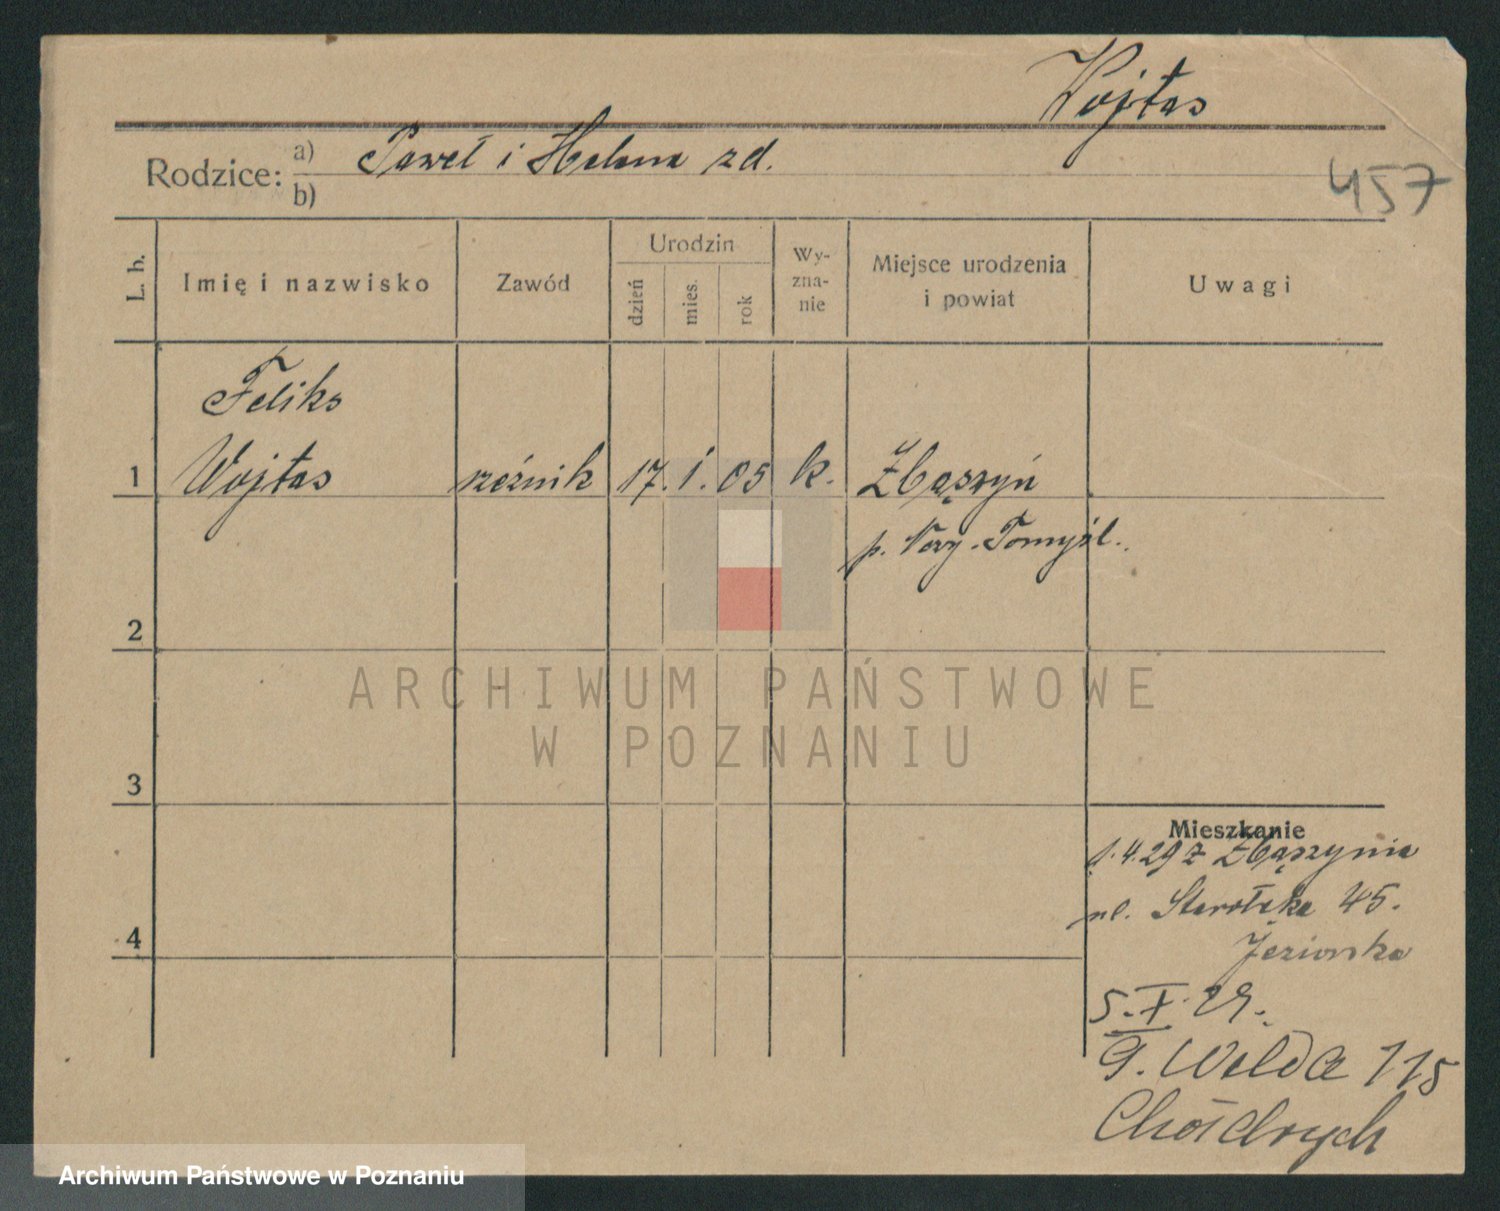 Wojtas
Rodzice: a) Paweł i Helena zd.
b)
457
L. b.
Imię i nazwisko
Zawód
Urodzin
dzień
mies.
rok
Wy-
zna-
nie
Miejsce urodzenia
i powiat
Uwagi
Feliks
1 Wojtas rzeźnik 17. 1. 05 k. Zbąszyń
p. Nowy-Tomyśl.
2
ARCHIWUM PAŃSTWOWE
W POZNANIU
3
4
Mieszkanie
1.4.29 z Zbąszynia
ul. Starołęka 45.
Jeziorska
5.X.29.
G. Wilda 115
Archiwum Państwowe w Poznaniu